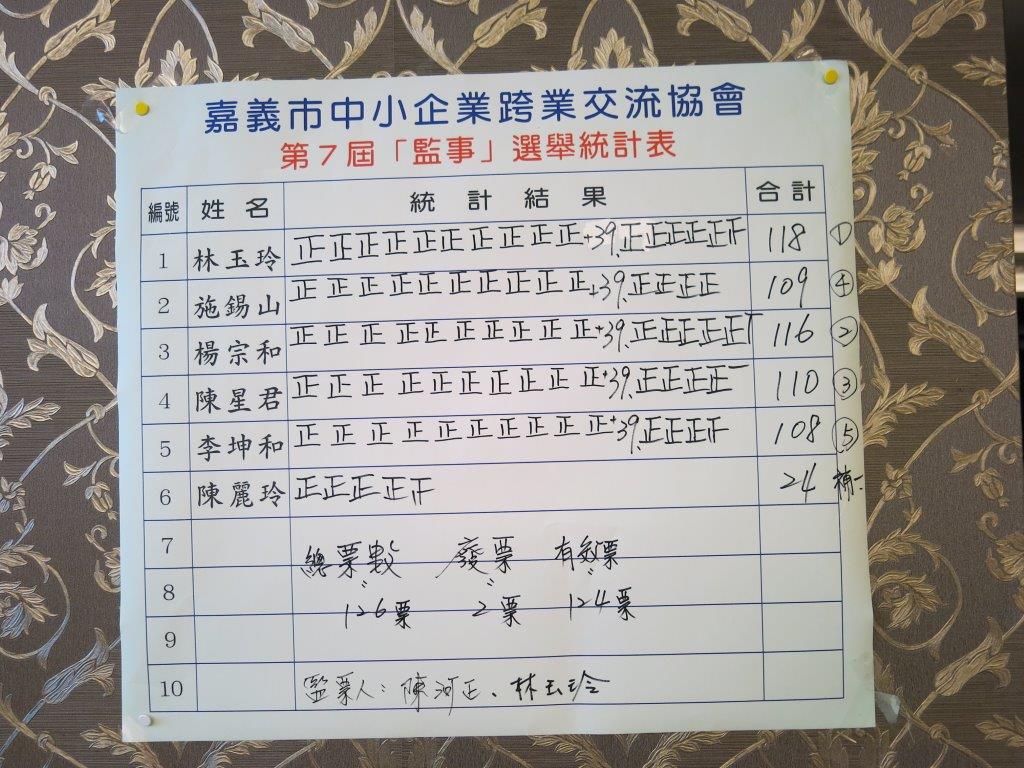 嘉義市中小企業跨業交流協會
第7屆「監事」選舉統計表
編號 姓名 統計結果 合計
1 林玉玲 正正正正正正正正正正+39.正正正正正 118 ①
2 施錫山 正正正正正正正正正正+39.正正正正 109 ④
3 楊宗和 正正正正正正正正正正+39.正正正正正 116 ②
4 陳星君 正正正正正正正正正正+39.正正正正一 110 ③
5 李坤和 正正正正正正正正正正+39.正正正 108 ⑤
6 陳麗玲 正正正正 24 補一
7 總票數 廢票 有效票
8 126票 2票 124票
9
10 監票人：陳河正、林玉玲